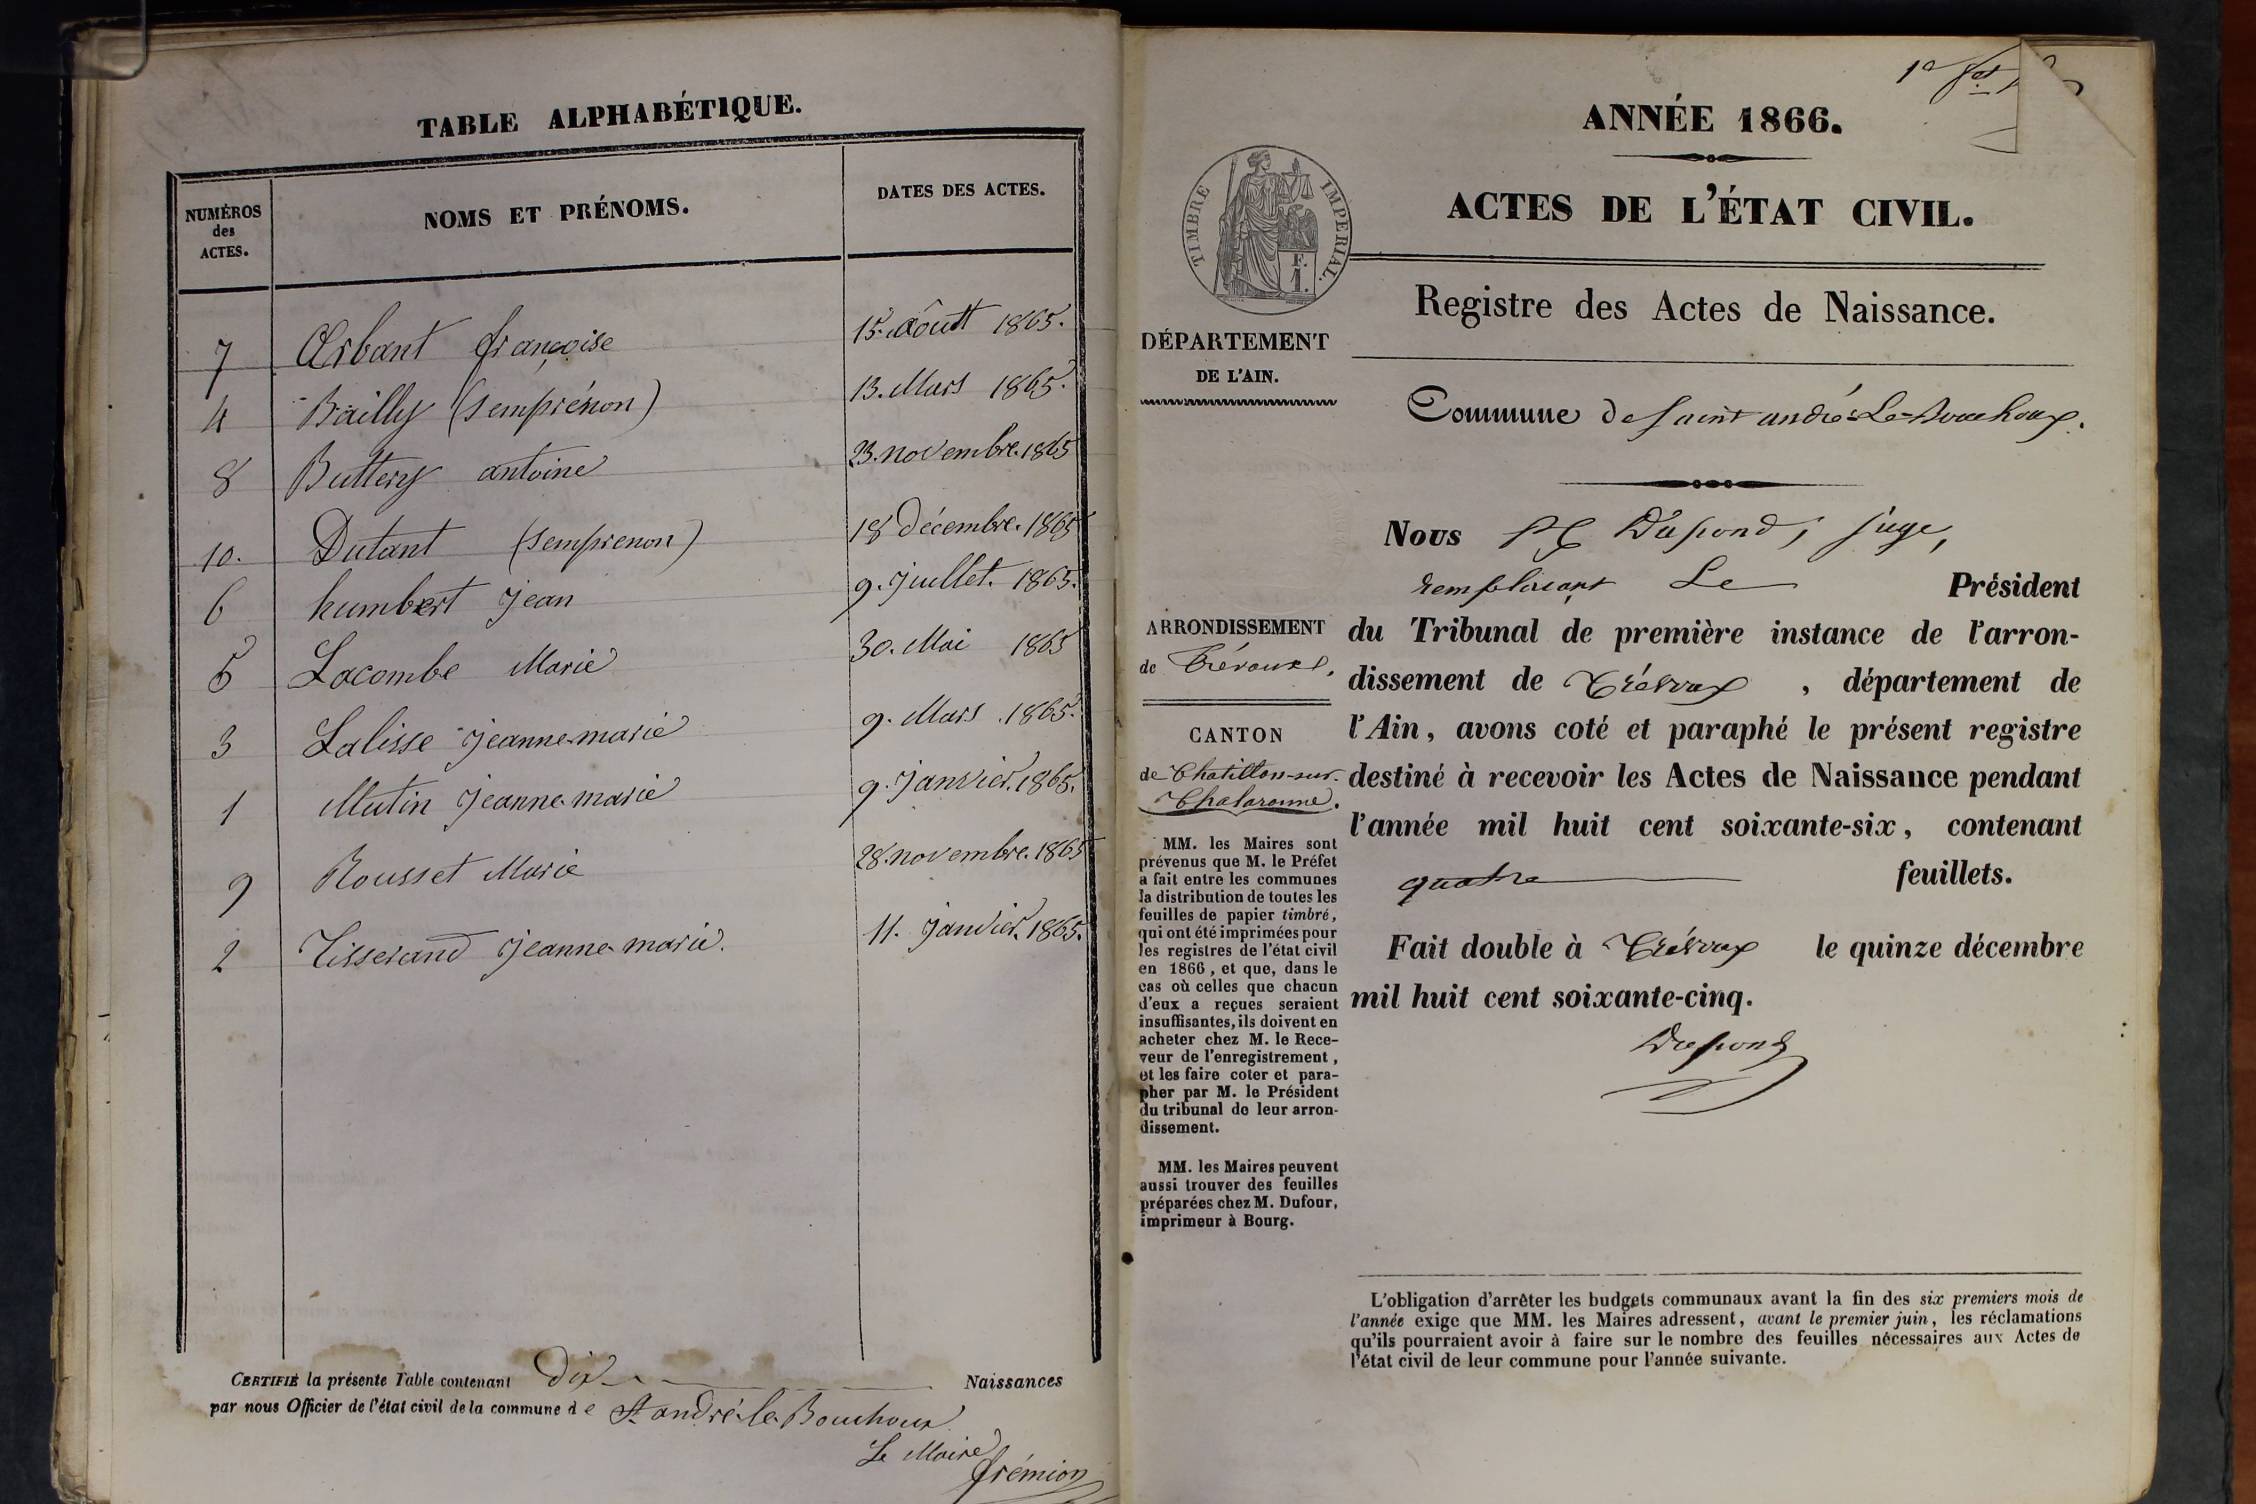 TABLE ALPHABÉTIQUE.
NUMÉROS des ACTES. NOMS ET PRÉNOMS. DATES DES ACTES.
7 Arbant françoise 15. Aoûtt 1865.
4 Bailly (semprénon) 13. Mars 1865.
8 Buttery antoine 23. novembre. 1865
10. Dutant (semprenon) 18 décembre. 1865
6 humbert jean 9. juillet. 1865.
5 Lacombe Marie 30. Mai 1865
3 Lalisse jeanne marie 9. Mars 1865.
1 Mutin jeanne marie 9. janvier. 1865.
9 Rousset Marie 28. novembre. 1865
2 Tisserand jeanne marie. 11. janvier. 1865.
CERTIFIÉ la présente Table contenant dix Naissances
par nous Officier de l'état civil de la commune de St andré-le-Bouchoux
Le Maire
frémion
ANNÉE 1866.
ACTES DE L'ÉTAT CIVIL.
TIMBRE IMPERIAL.
F.
1.
Registre des Actes de Naissance.
DÉPARTEMENT
DE L'AIN.
Commune de saint andré-Le-Bouchoux.
ARRONDISSEMENT
de Trévoux.
CANTON
de Chatillon-sur-
Chalaronne.
MM. les Maires sont
prévenus que M. le Préfet
a fait entre les communes
la distribution de toutes les
feuilles de papier timbré,
qui ont été imprimées pour
les registres de l'état civil
en 1866, et que, dans le
cas où celles que chacun
d'eux a reçues seraient
insuffisantes, ils doivent en
acheter chez M. le Rece-
veur de l'enregistrement,
et les faire coter et para-
pher par M. le Président
du tribunal de leur arron-
dissement.
MM. les Maires peuvent
aussi trouver des feuilles
préparées chez M. Dufour,
imprimeur à Bourg.
Nous Dupond, juge,
remplaçant Le Président
du Tribunal de première instance de l'arron-
dissement de Trévoux, département de
l'Ain, avons coté et paraphé le présent registre
destiné à recevoir les Actes de Naissance pendant
l'année mil huit cent soixante-six, contenant
quatre feuillets.
Fait double à Trévoux le quinze décembre
mil huit cent soixante-cinq.
Dupond
L'obligation d'arrêter les budgets communaux avant la fin des six premiers mois de
l'année exige que MM. les Maires adressent, avant le premier juin, les réclamations
qu'ils pourraient avoir à faire sur le nombre des feuilles nécessaires aux Actes de
l'état civil de leur commune pour l'année suivante.